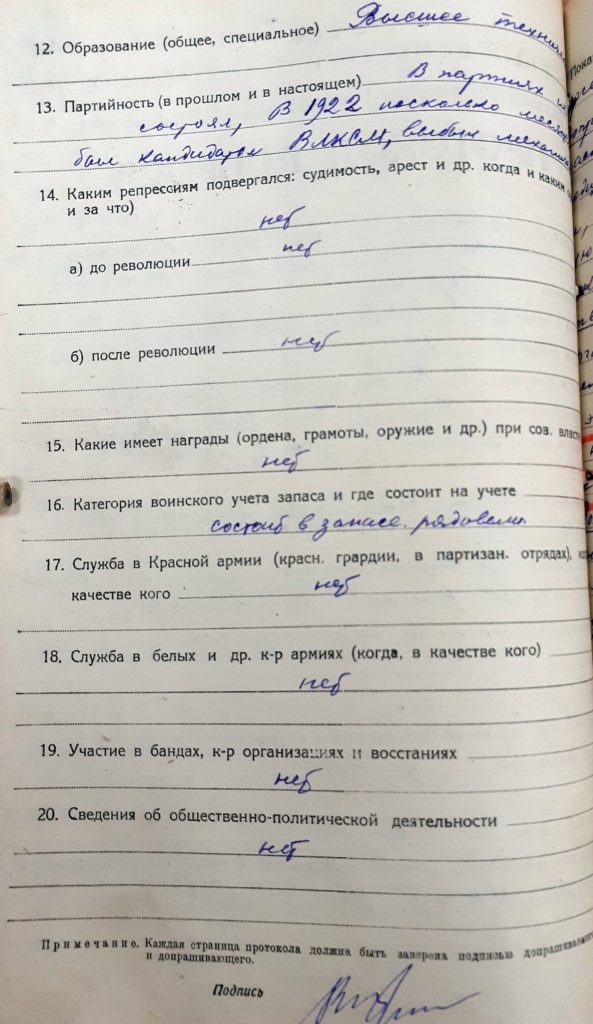 12. Образование (общее, специальное) Высшее техни
13. Партийность (в прошлом и в настоящем) В партиях
состоял, В 1922 несколько меся
был кандидатом ВЛКСМ, выбыл механи
14. Каким репрессиям подвергался: судимость, арест и др. когда и каким
и за что)
нет
а) до революции нет
б) после революции нет
15. Какие имеет награды (ордена, грамоты, оружие и др.) при сов. власт
нет
16. Категория воинского учета запаса и где состоит на учете
состоит в запасе. рядовым.
17. Служба в Красной армии (красн. грардии, в партизан. отрядах), ко
качестве кого нет
18. Служба в белых и др. к-р армиях (когда, в качестве кого)
нет
19. Участие в бандах, к-р организациях и восстаниях
нет
20. Сведения об общественно-политической деятельности
нет
Примечание. Каждая страница протокола должна быть заверена подписью допрашиваемого
и допрашивающего.
Подпись